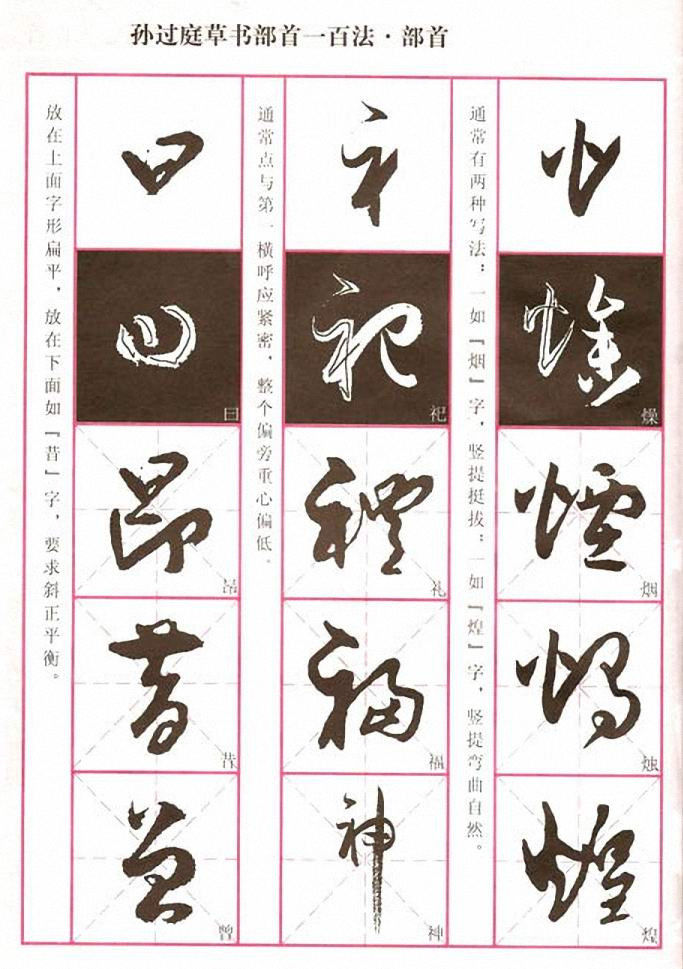 孙过庭草书部首一百法·部首
通常有两种写法：一如『烟』字，竖提挺拔；一如『煌』字，竖提弯曲自然。
火
燥
燥
烟
烟
烛
烛
煌
煌
通常点与第一横呼应紧密，整个偏旁重心偏低。
礻
祀
祀
礼
礼
福
福
神
神
放在上面字形扁平，放在下面如『昔』字，要求斜正平衡。
曰
曰
曰
昂
昂
昔
昔
曾
曾